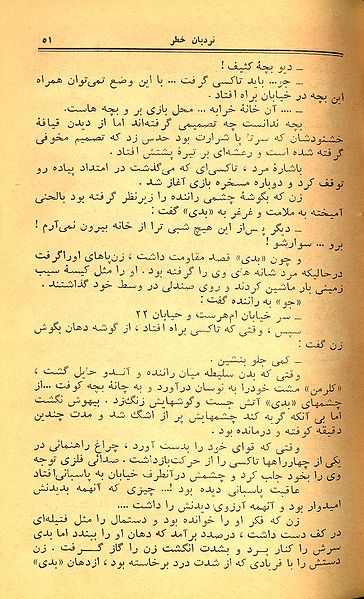 نردبان خطر
۵۱
ـ دیو بچهٔ کثیف !
ـ جر... باید تاکسی گرفت ... با این وضع نمی‌توان همراه
این بچه در خیابان براه افتاد .
ـ .... آن خانهٔ خرابه ... محل بازی بر و بچه هاست.
بچه ندانست چه تصمیمی گرفته‌اند اما از دیدن قیافهٔ
خشنودشان که سرتا پا شرارت بود حدس زد که تصمیم مخوفی
گرفته شده است و رعشه‌ای بر تیرهٔ پشتش افتاد .
باشارهٔ مرد ، تاکسی‌ای که می‌گذشت در امتداد پیاده رو
توقف کرد و دوباره مسخره بازی آغاز شد .
زن که بگوشهٔ چشمی راننده را زیرنظر گرفته بود بالحنی
آمیخته به ملامت و غرغر به «بدی» گفت :
ـ دیگر پس‌از این هیچ شبی ترا از خانه بیرون نمی‌آرم !
برو ... سوارشو !
و چون «بدی» قصد مقاومت داشت ، زن‌پاهای اوراگرفت
درحالیکه مرد شانه های وی را گرفته بود . او را مثل کیسهٔ سیب
زمینی بار ماشین کردند و روی صندلی در وسط خود گذاشتند .
«جو» به راننده گفت :
ـ سر خیابان ام‌هرست و خیابان ۲۲
سپس ، وقتی که تاکسی براه افتاد ، از گوشه دهان بگوش
زن گفت :
ـ کمی جلو بنشین .
وقتی که بدن سلیطه میان راننده و آندو حایل گشت ،
«کلرمن» مشت خودرا به نوسان درآورد و به چانهٔ بچه کوفت ...از
چشمهای «بدی» آتش جست وگوشهایش زنگ‌زد . بیهوش نگشت
اما بی آنکه گریه کند چشمهایش پر از اشک شد و مدت چندین
دقیقه کوفته و درمانده بود .
وقتی که قوای خود را بدست آورد ، چراغ راهنمائی در
یکی از چهارراهها تاکسی را از حرکت‌بازداشت . صدائی فلزی توجه
وی را بخود جلب کرد و چشمش درآنطرف خیابان به پاسبانی‌افتاد
عاقبت پاسبانی دیده بود !... چیزی که آنهمه بدیدنش
امیدوار بود و آنهمه آرزوی دیدنش را داشت ....
زن که فکر او را خوانده بود و دستمال را مثل فتیله‌ای
در کف دست داشت ، درصدد برآمد که دهان او را ببندد اما بدی
سرش را کنار برد و بشدت انگشت زن را گاز گرفت . زن
دستش را با فریادی که از شدت درد برخاسته بود ، ازدهان «بدی»